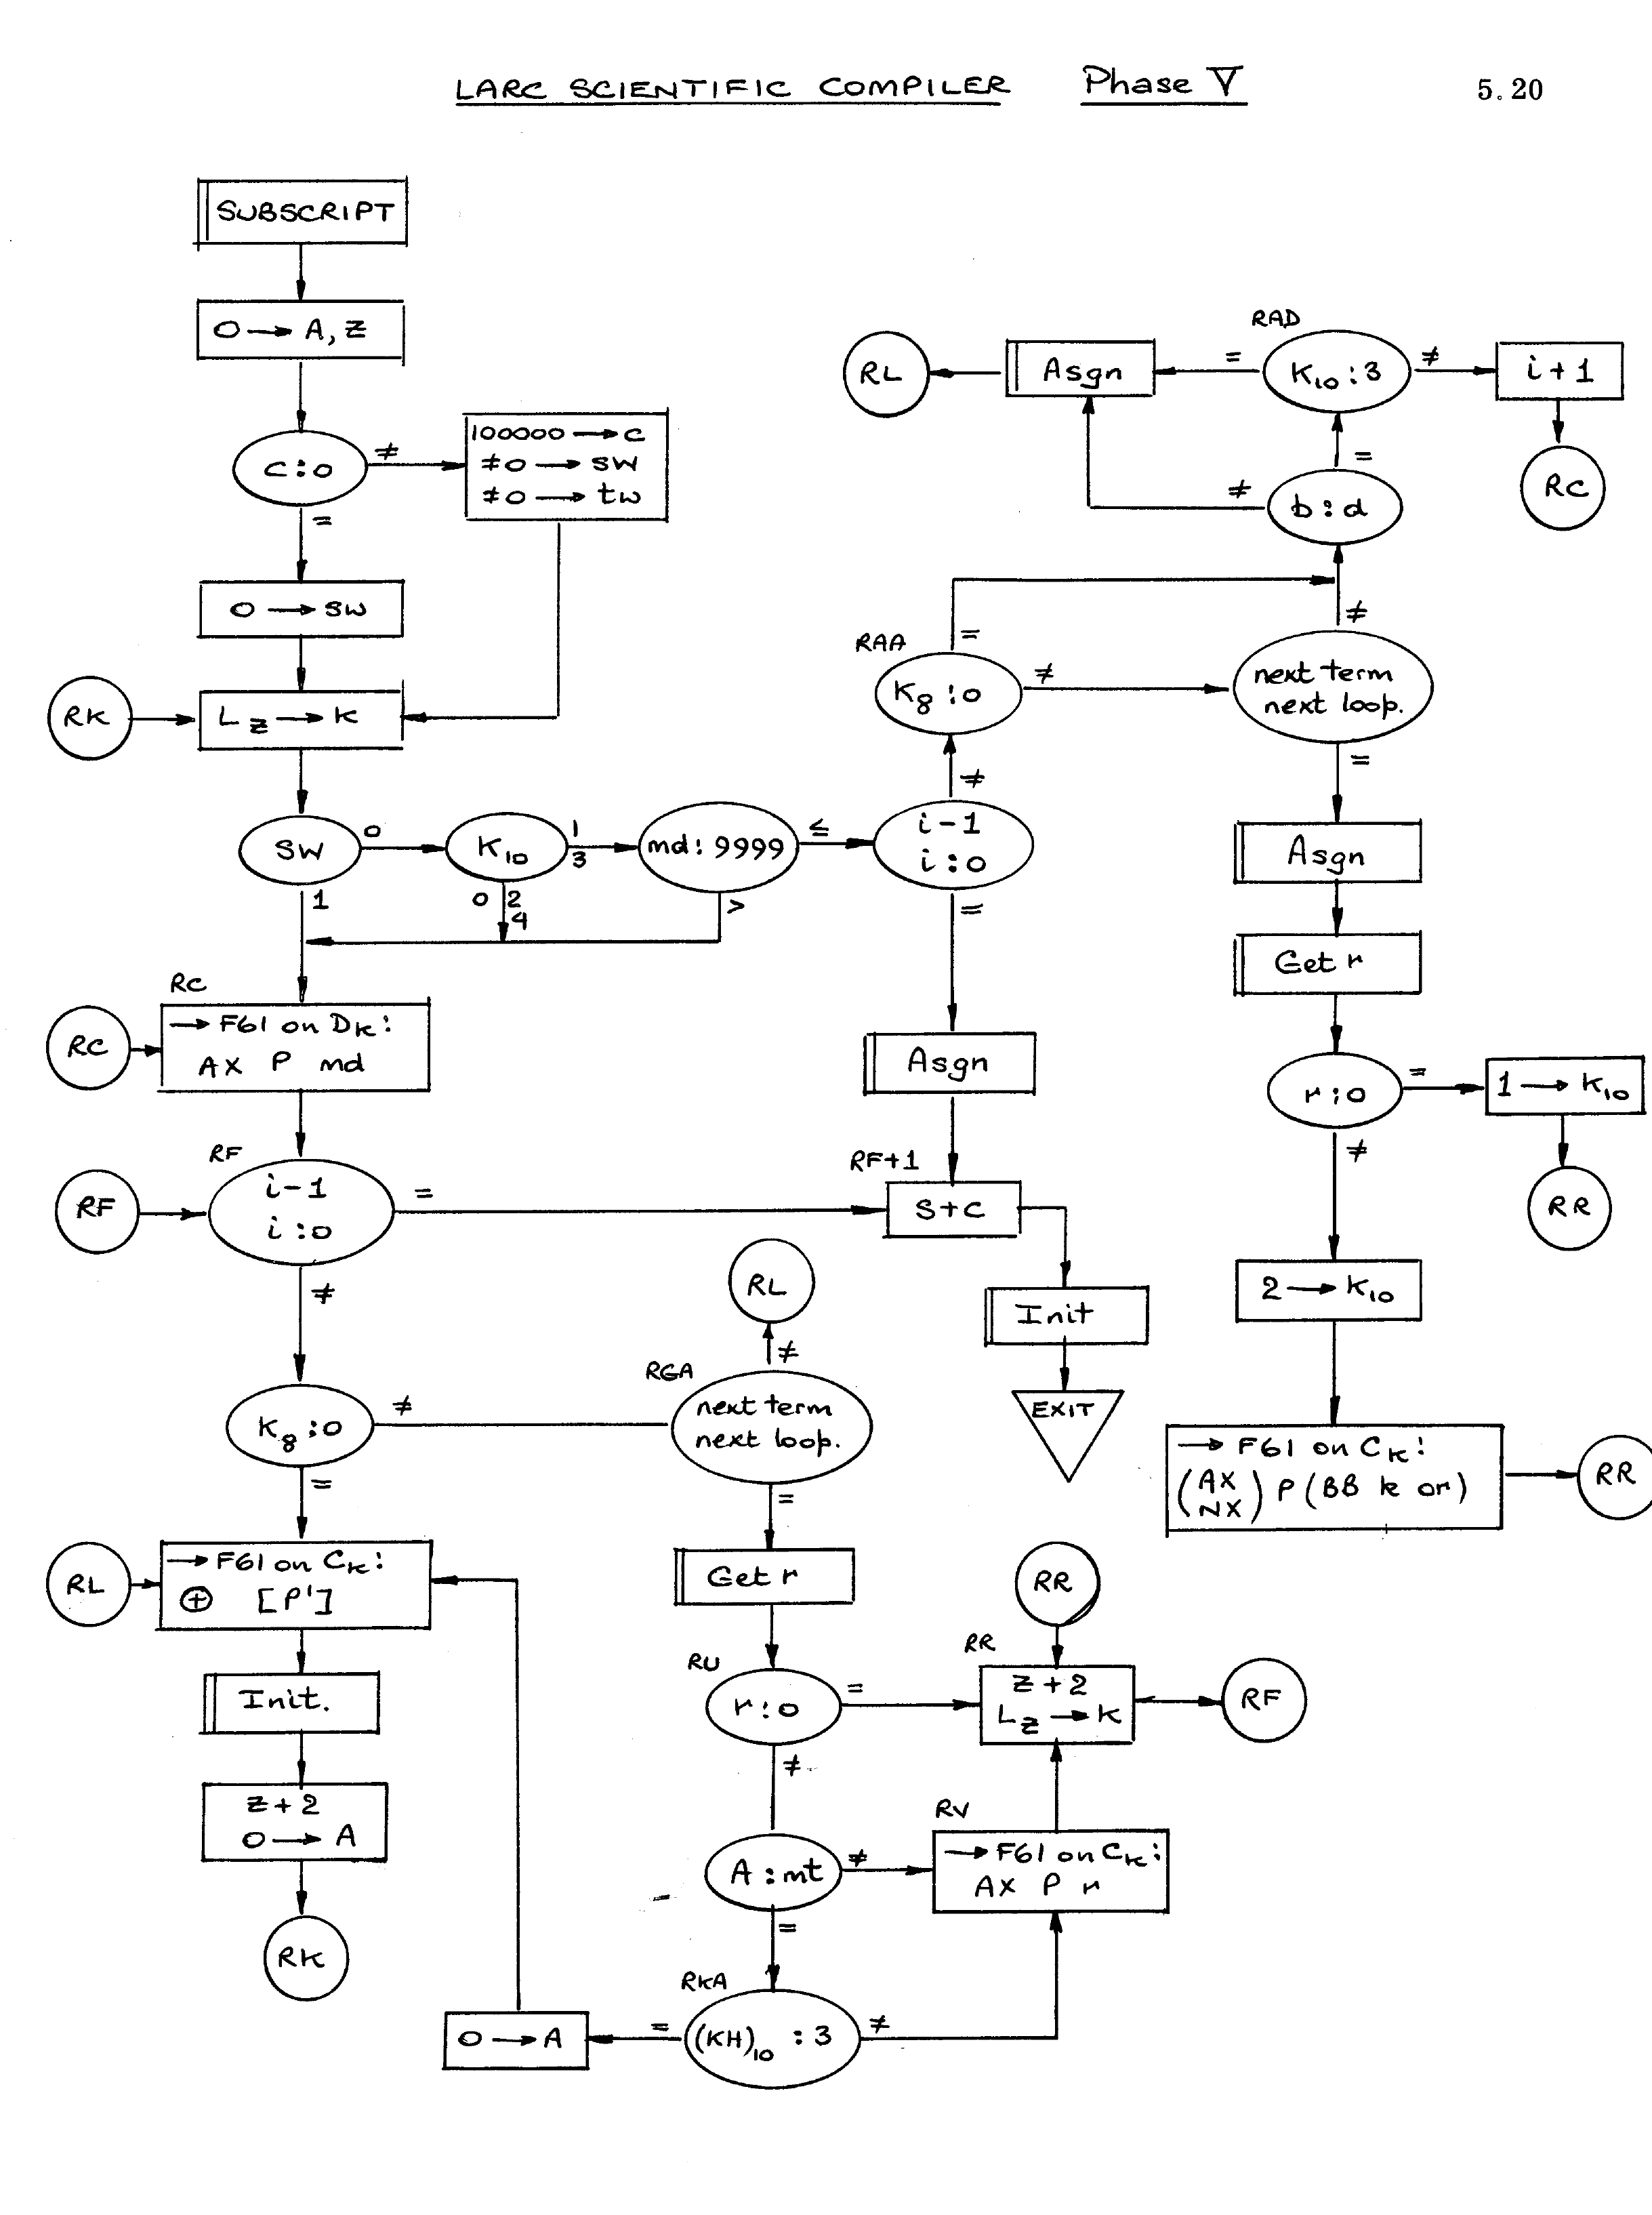 LARC SCIENTIFIC COMPILER Phase V 5.20
SUBSCRIPT
0 → A, Z
c : 0
≠
=
100000 → c
≠0 → sw
≠0 → tw
0 → sw
RK
L_Z → K
SW
0
1
K10
1
3
0 2
4
md : 9999
≤
>
i-1
i : 0
≠
=
RAA
K8 : 0
=
≠
next term
next loop.
≠
=
b : d
≠
=
RAD
K10 : 3
=
≠
Asgn
RL
i + 1
RC
Asgn
Get r
r : 0
=
≠
1 → K10
RR
2 → K10
→ F61 on CK :
(AX
NX) P (BB k or)
RR
RC
RC
→ F61 on DK :
AX P md
RF
RF
i-1
i : 0
=
≠
Asgn
RF+1
S+C
Init
EXIT
K8 : 0
≠
=
RGA
next term
next loop.
≠
=
RL
RL
→ F61 on CK :
⊕ [P']
Init.
Z + 2
0 → A
RK
Get r
RU
r : 0
=
≠
RR
RR
Z + 2
L_Z → K
RF
A : mt
≠
=
RV
→ F61 on CK :
AX P r
RKA
(KH)10 : 3
=
≠
0 → A